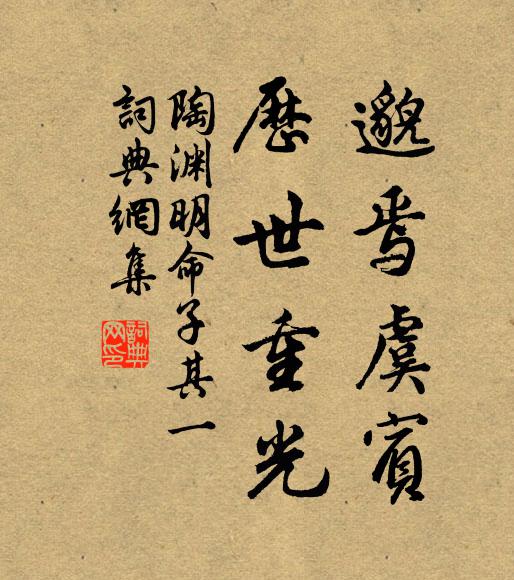 邈焉虞賓
歷世重光
陶淵明命子其一
詞典網集
詞典網印